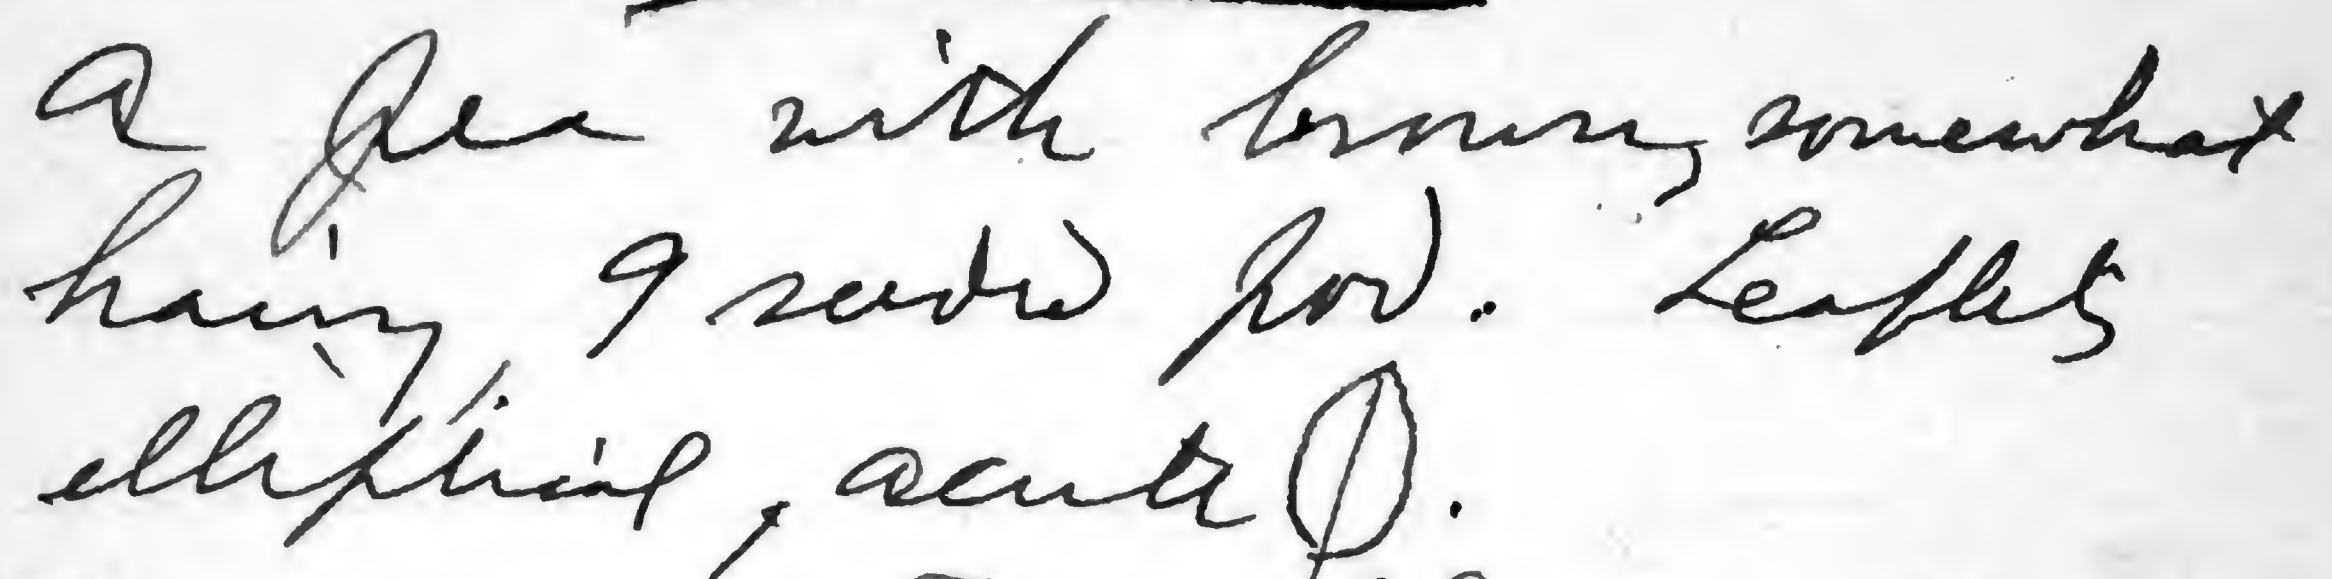 A pea with brown, somewhat
hairy, 9 seeded pod. Leaflets
elliptical, acute.